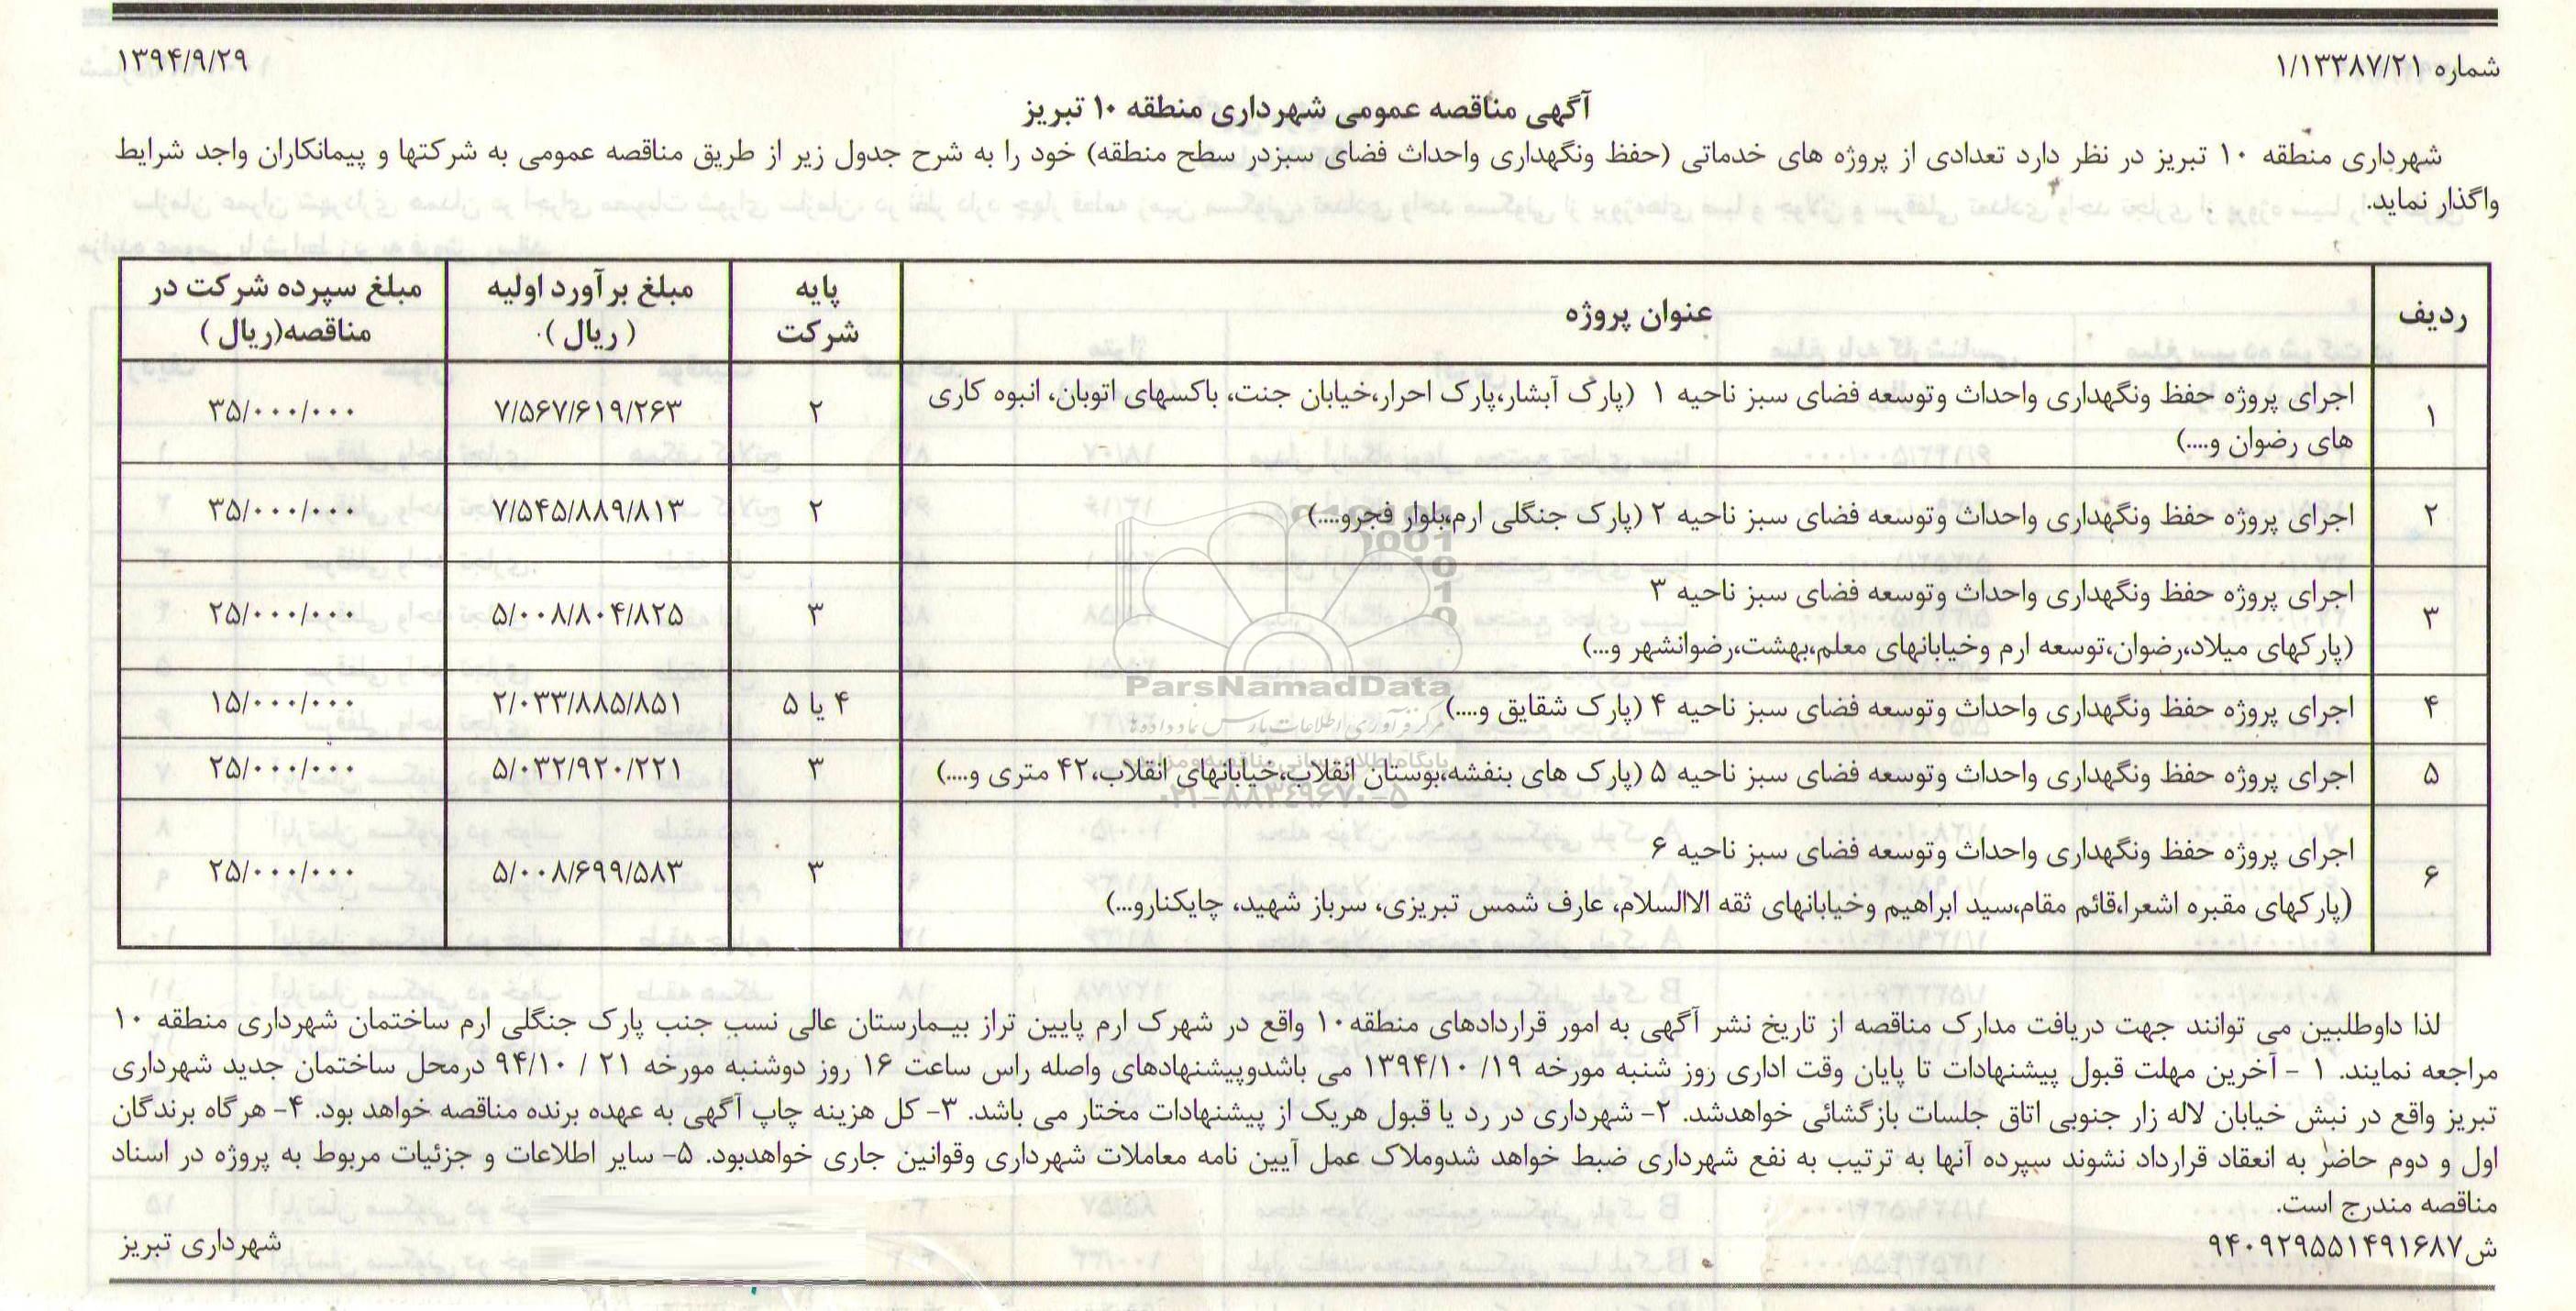 شماره ۱/۱۳۳۸۷/۲۱
۱۳۹۴/۹/۲۹
آگهی مناقصه عمومی شهرداری منطقه ۱۰ تبریز
شهرداری منطقه ۱۰ تبریز در نظر دارد تعدادی از پروژه های خدماتی (حفظ ونگهداری واحداث فضای سبزدر سطح منطقه) خود را به شرح جدول زیر از طریق مناقصه عمومی به شرکتها و پیمانکاران واجد شرایط
واگذار نماید.
ردیف | عنوان پروژه | پایه شرکت | مبلغ برآورد اولیه (ریال) | مبلغ سپرده شرکت در مناقصه(ریال)
۱ | اجرای پروژه حفظ ونگهداری واحداث وتوسعه فضای سبز ناحیه ۱ (پارک آبشار،پارک احرار،خیابان جنت، باکسهای اتوبان، انبوه کاری های رضوان و....) | ۲ | ۷/۵۶۷/۶۱۹/۲۶۳ | ۳۵/۰۰۰/۰۰۰
۲ | اجرای پروژه حفظ ونگهداری واحداث وتوسعه فضای سبز ناحیه ۲ (پارک جنگلی ارم،بلوار فجرو....) | ۲ | ۷/۵۴۵/۸۸۹/۸۱۳ | ۳۵/۰۰۰/۰۰۰
۳ | اجرای پروژه حفظ ونگهداری واحداث وتوسعه فضای سبز ناحیه ۳ (پارکهای میلاد،رضوان،توسعه ارم وخیابانهای معلم،بهشت،رضوانشهر و...) | ۳ | ۵/۰۰۸/۸۰۴/۸۲۵ | ۲۵/۰۰۰/۰۰۰
۴ | اجرای پروژه حفظ ونگهداری واحداث وتوسعه فضای سبز ناحیه ۴ (پارک شقایق و....) | ۴ یا ۵ | ۲/۰۳۳/۸۸۵/۸۵۱ | ۱۵/۰۰۰/۰۰۰
۵ | اجرای پروژه حفظ ونگهداری واحداث وتوسعه فضای سبز ناحیه ۵ (پارک های بنفشه،بوستان انقلاب،خیابانهای انقلاب،۴۲ متری و....) | ۳ | ۵/۰۳۲/۹۲۰/۲۲۱ | ۲۵/۰۰۰/۰۰۰
۶ | اجرای پروژه حفظ ونگهداری واحداث وتوسعه فضای سبز ناحیه ۶ (پارکهای مقبره اشعرا،قائم مقام،سید ابراهیم وخیابانهای ثقه الاالسلام، عارف شمس تبریزی، سرباز شهید، چایکنارو...) | ۳ | ۵/۰۰۸/۶۹۹/۵۸۳ | ۲۵/۰۰۰/۰۰۰
ParsNamadData
مرکز فرآوری اطلاعات پارس نماد داده ها
پایگاه اطلاع رسانی مناقصه و مزایده
۰۲۱-۸۸۳۴۹۶۷۰-۵
لذا داوطلبین می توانند جهت دریافت مدارک مناقصه از تاریخ نشر آگهی به امور قراردادهای منطقه۱۰ واقع در شهرک ارم پایین تراز بیـمارستان عالی نسب جنب پارک جنگلی ارم ساختمان شهرداری منطقه ۱۰
مراجعه نمایند. ۱ - آخرین مهلت قبول پیشنهادات تا پایان وقت اداری روز شنبه مورخه ۱۹/ ۱۳۹۴/۱۰ می باشدوپیشنهادهای واصله راس ساعت ۱۶ روز دوشنبه مورخه ۲۱ / ۹۴/۱۰ درمحل ساختمان جدید شهرداری
تبریز واقع در نبش خیابان لاله زار جنوبی اتاق جلسات بازگشائی خواهدشد. ۲- شهرداری در رد یا قبول هریک از پیشنهادات مختار می باشد. ۳- کل هزینه چاپ آگهی به عهده برنده مناقصه خواهد بود. ۴- هرگاه برندگان
اول و دوم حاضر به انعقاد قرارداد نشوند سپرده آنها به ترتیب به نفع شهرداری ضبط خواهد شدوملاک عمل آیین نامه معاملات شهرداری وقوانین جاری خواهدبود. ۵- سایر اطلاعات و جزئیات مربوط به پروژه در اسناد
مناقصه مندرج است.
ش۹۴۰۹۲۹۵۵۱۴۹۱۶۸۷
شهرداری تبریز